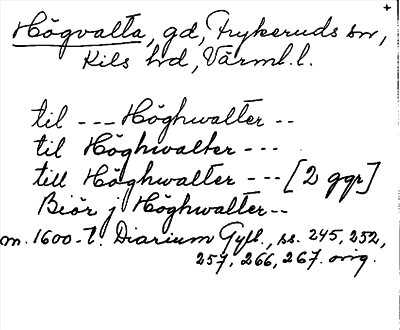 +
Högvalta, gd, Frykeruds sn,
Kils hd, Värml. l.
til --- Höghwalter --
til Höghwalter ---
till Höghwalter --- [2 ggr]
Biör j Höghwalter --
m. 1600-t. Diarium Gyll., ss. 245, 252,
257, 266, 267. orig.